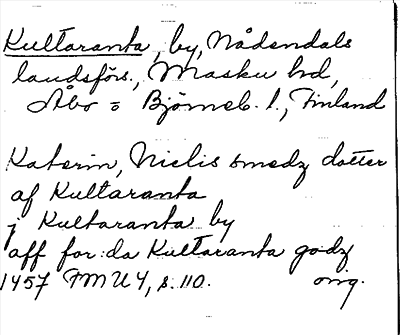 Kultaranta, by, Nådendals
landsförs., Masku hd,
Åbo = Björneb. l., Finland
Katerin, Nielis smedz dotter
af Kultaranta
j Kultaranta by
aff for:da Kultaranta godz
1457 FMU 4, s. 110. orig.